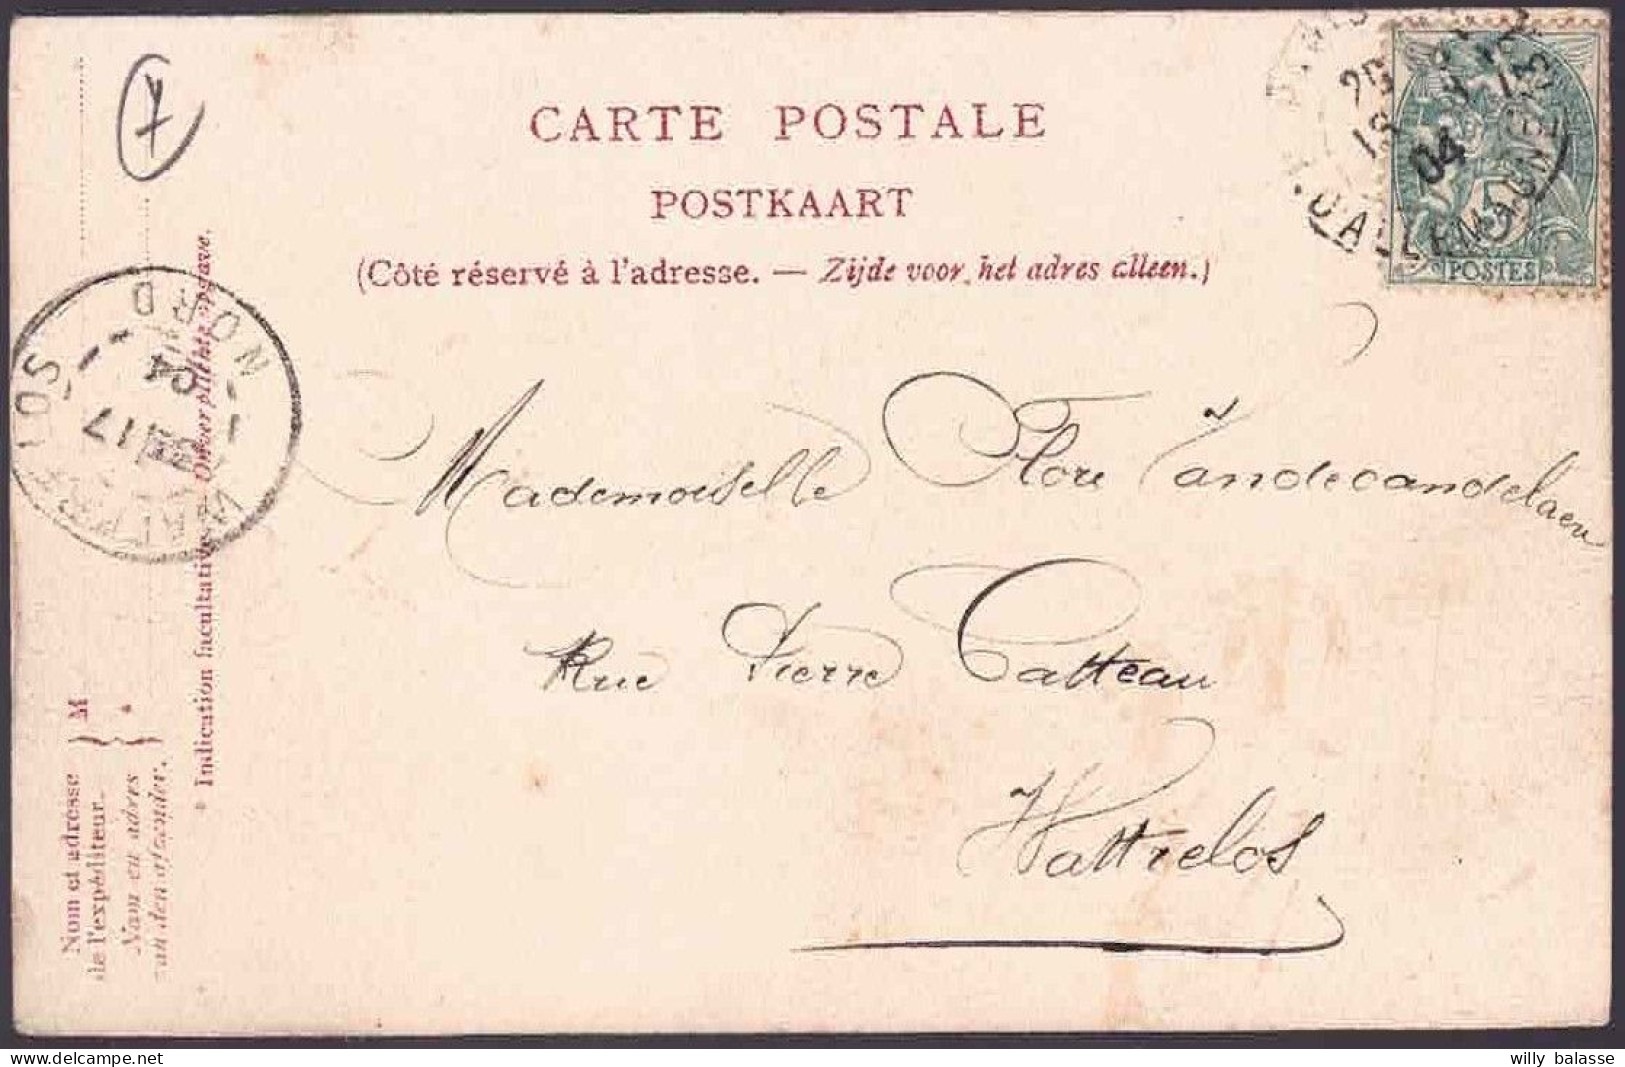 7
CARTE POSTALE
POSTKAART
(Côté réservé à l'adresse. — Zijde voor het adres alleen.)
04
5
POSTES
NORD
04
17
Mademoiselle Flore Vandecandelaere
Rue Pierre Catteau
Wattrelos
Nom et adresse
de l'expéditeur.
M
Nam en adres
van den afzender.
*
* Indication facultative — Onverplichte opgave.
willy balasse